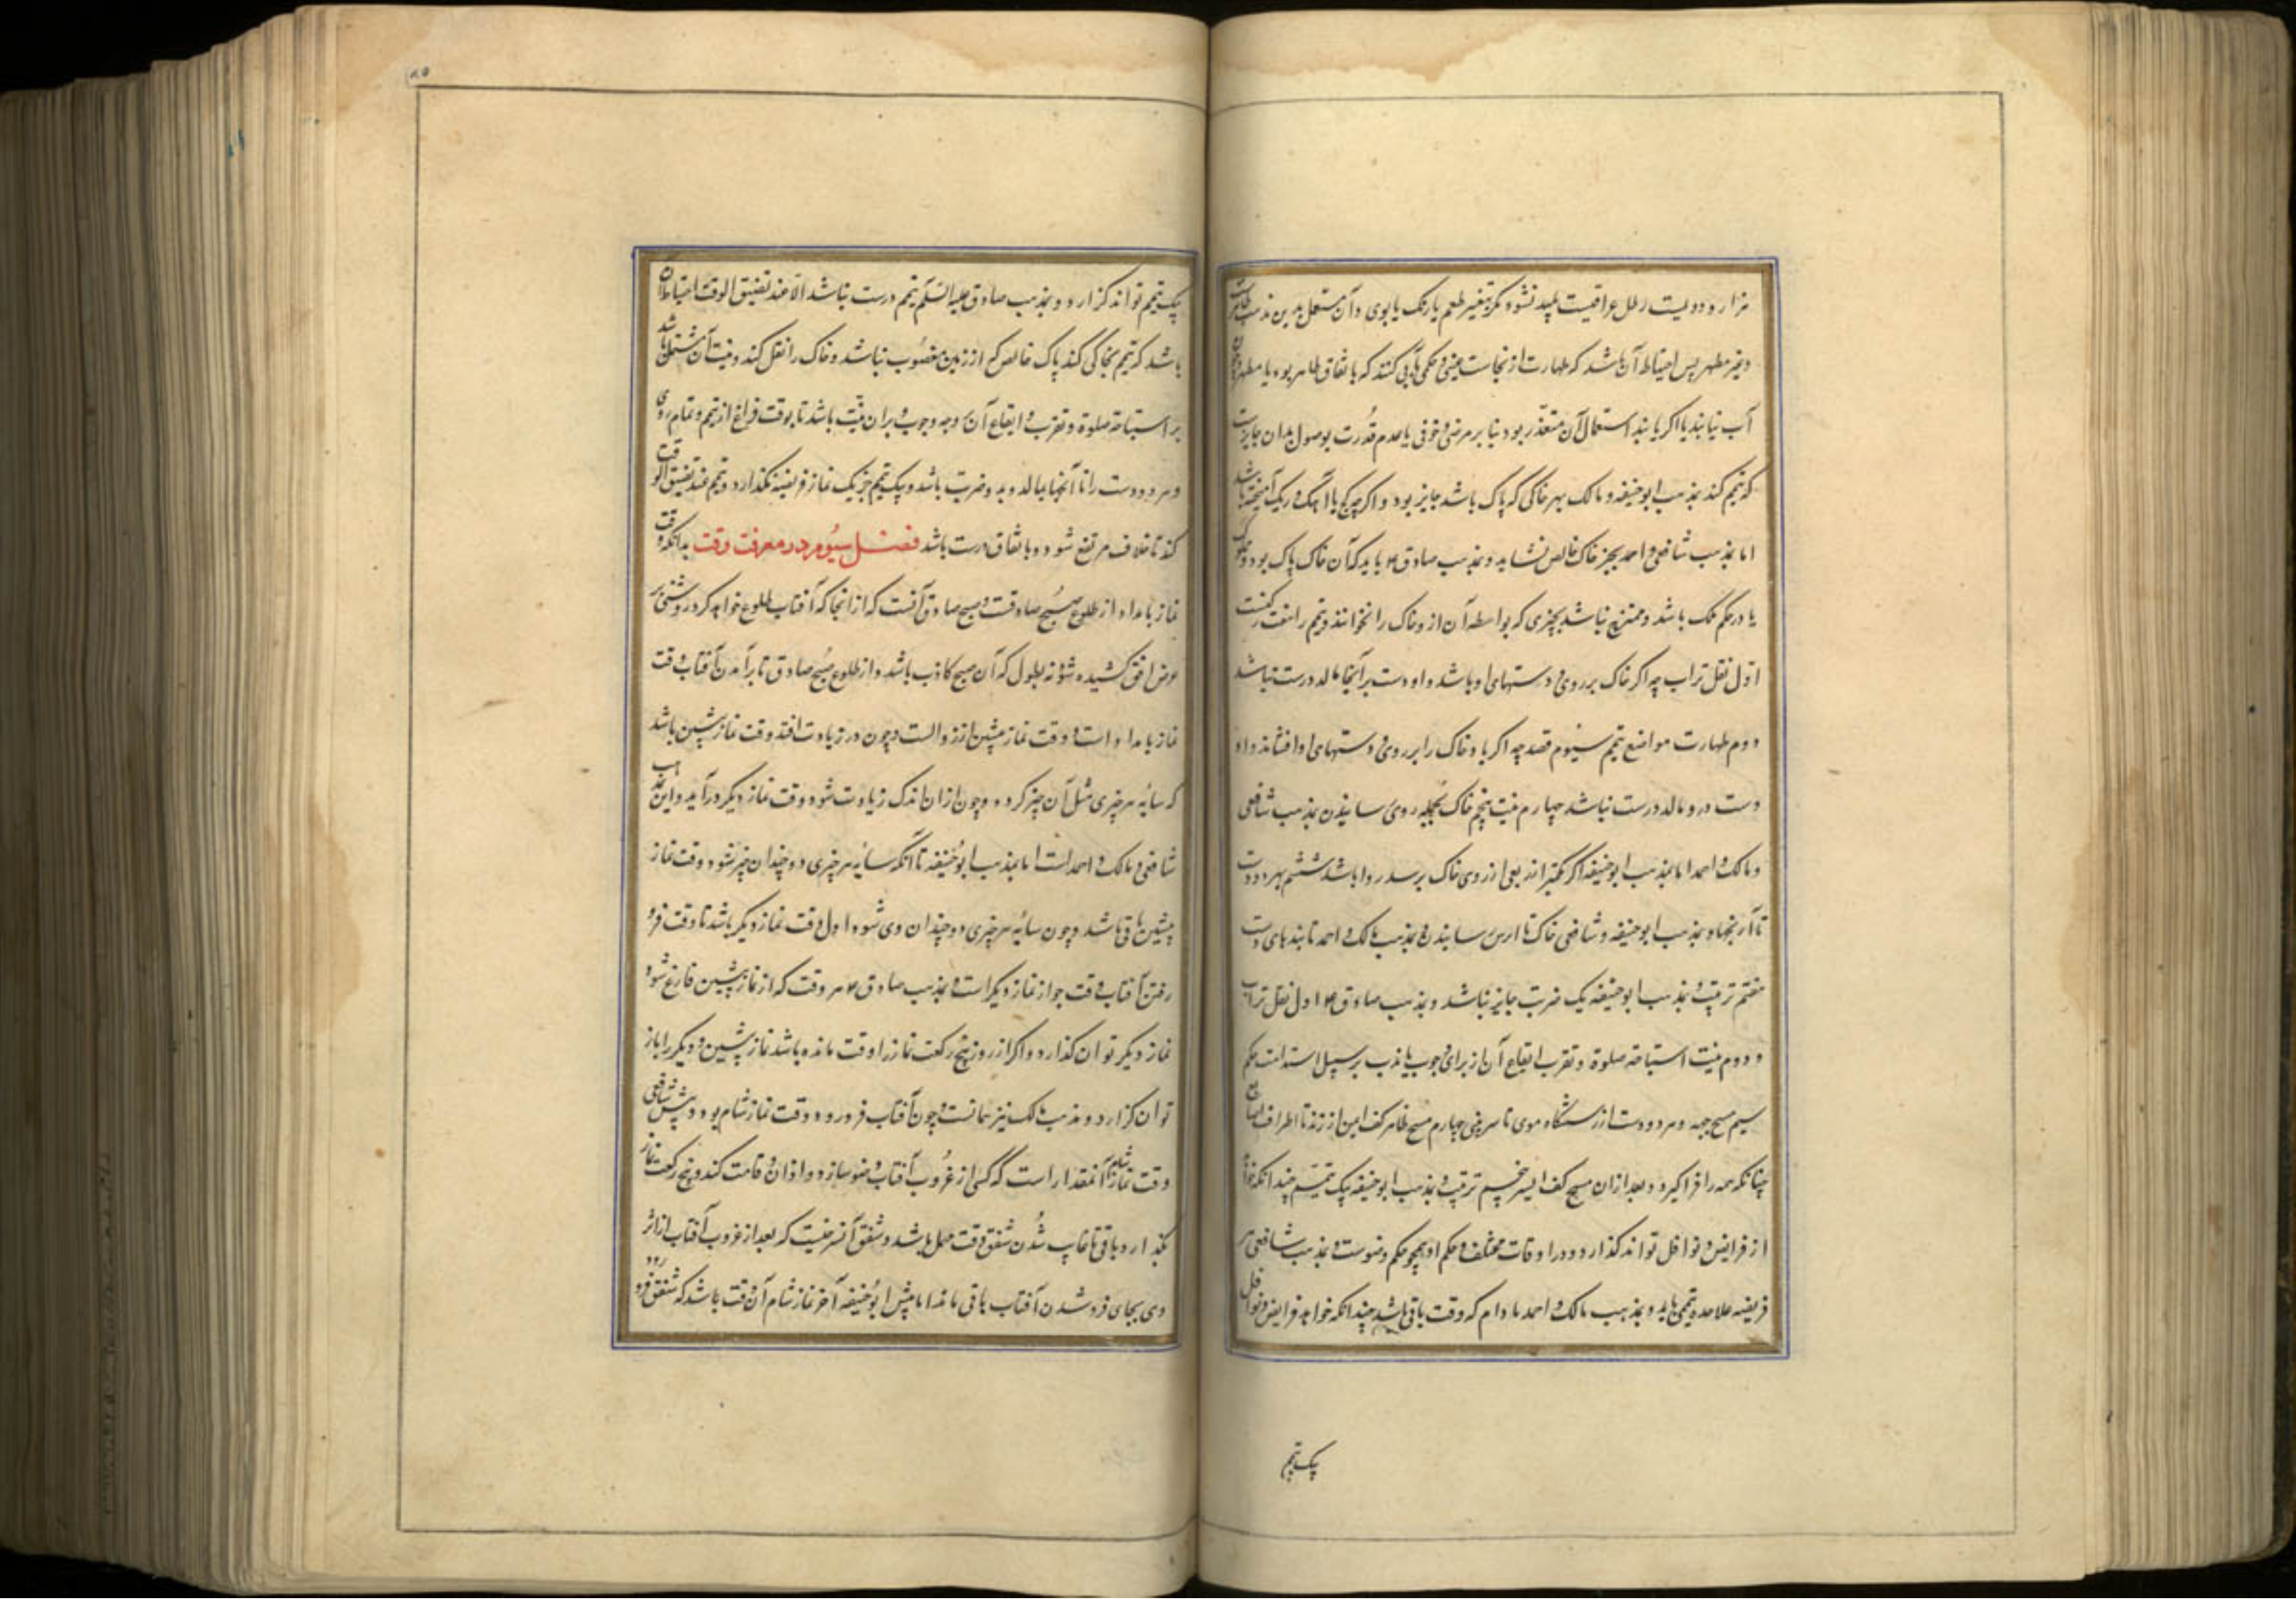 هزار و دویست رطل عراقیست پلید نشود مگر بتغیر طعم یا رنک یا بوی و آن مستعمل بدین مذهب طاهرست
و غیر مطهر پس احتیاط آن باشد که طهارت از نجاست عینی و حکمی بآبی کنند که باتفاق طاهر بود یا مطهر و چون
آب نیابند یا اکر یابند استعمال آن متعذر بود بنابر مرضی و خوفی یا عدم قدرت بوصول بدان جایزست
که تیمم کند بمذهب ابو حنیفه و مالک بهر خاکی که پاک باشد جایز بود و اکرچه کج یا آهک و ریک آمیخته باشد
اما بمذهب شافعی و احمد بجز خاک خالص نشاید و بمذهب صادق ع باید که آن خاک پاک بود و مملوک
یا در حکم ملک باشد و ممتزج نباشد بچیزی که بواسطه آن از و خاک را نخوانند و تیمم را هفت رکنست
اول نقل تراب چه اکر خاک بر روی و دستهای او باشد و او دست بر آنجا مالد درست نباشد
دوم طهارت مواضع تیمم سیوم قصد چه اکر باد خاک را بر روی و دستهای او افشاند و او
دست در و مالد درست نباشد چهارم نیت پنجم خاک بجمله روی رسانیدن بمذهب شافعی
و مالک و احمد اما بمذهب ابو حنیفه اکر کمتر از ربعی از روی خاک نرسد روا باشد ششم بهر دو دست
تا آرنجها و بمذهب ابو حنیفه و شافعی خاک تا ارش رسانیدن و بمذهب مالک و احمد تا بندهای دست
هفتم ترتیب و بمذهب ابو حنیفه یک ضربت جایز نباشد و بمذهب صادق ع اول نقل تراب
و دوم نیت استباحه صلوة و تقرب ایقاع آن از برای وجوب یا ندب بر سبیل استدامت حکم
سیم مسح جبهه و هر دو دست از رستنگاه موی تا سر بینی چهارم مسح ظاهر کف ایمن از زند تا اطراف اصابع
چنانکه همه را فرا کیرد و بعد از آن مسح کف ایسر پنجم ترتیب و بمذهب ابو حنیفه بیک تیمم چندانکه خواهد
از فرایض و نوافل تواند کذارد و در اوقات مختلف و حکم او همچو حکم وضوست و بمذهب شافعی هر
فریضه علاحده تیممی باید و بمذهب مالک و احمد مادام که وقت باقی باشد چندانکه خواهد فرایض و نوافل
بیک تیمم
بیک تیمم تواند کزارد و بمذهب صادق علیه السلم تیمم درست نباشد الا عند تضیق الوقت احتیاط آن
باشد که تیمم بخاکی کند پاک خالص که از زمین مغصوب نباشد و خاک را نقل کند و نیت آن مشتمل باشد
بر استباحه صلوة و تقرب و ایقاع آن بر وجه وجوب و بران نیت باشد تا بوقت فراغ از تیمم و تمام روی
و هر دو دست را تا آنجا بمالد و به دو ضربت باشد و بیک تیمم جز یک نماز فریضه نکذارد و تیمم عند تضیق الوقت
کند تا خلاف مرتفع شود و باتفاق درست باشد فصل سیوم در معرفت وقت بدانکه وقت
نماز بامداد از طلوع صبح صادقست و صبح صادق آنست که از انجا که آفتاب طلوع خواهد کرد روشنی بر
عرض افق کشیده شود نه بطول که آن صبح کاذب باشد و از طلوع صبح صادق تا برآمدن آفتاب وقت
نماز بامداد است و وقت نماز پیشین از زوالست و چون در زیادت افتد وقت نماز پیشین باشد
که سایه هر چیزی مثل آن چیز کردد و چون از ان اندک زیادت شود وقت نماز دیکر درآید و این مذهب
شافعی و مالک و احمد است اما بمذهب ابو حنیفه تا آنکه سایه هر چیزی دو چندان چیز نشود وقت نماز
پیشین باقی باشد و چون سایه هر چیزی دو چندان وی شود اول وقت نماز دیکر باشد تا وقت فرو
رفتن آفتاب وقت جواز نماز دیکر است و بمذهب صادق ع هر وقت که از نماز پیشین فارغ شود
نماز دیکر توان کذارد و اکر از روز پنج رکعت نماز را وقت مانده باشد نماز پیشین و دیکر را باز
توان کزارد و مذهب مالک نیز همانست و چون آفتاب فرو رود وقت نماز شام بود و پیش شافعی
وقت نماز شام آنمقدار است که کسی از غروب آفتاب وضو سازد و اذان و قامت کند و پنج رکعت نماز
بکذارد و باقی تا غایب شدن شفق وقت مهمل باشد و شفق آن سرخیست که بعد از غروب آفتاب از اثر
وی بجای فرو شدن آفتاب باقی ماند اما پیش ابو حنیفه آخر نماز شام آن وقت باشد که شفق فرو رود